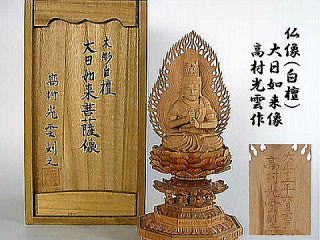 仏像(白檀)
大日如来像
高村光雲作
木彫白檀
大日如来菩薩像
高村光雲刻之
高村光雲